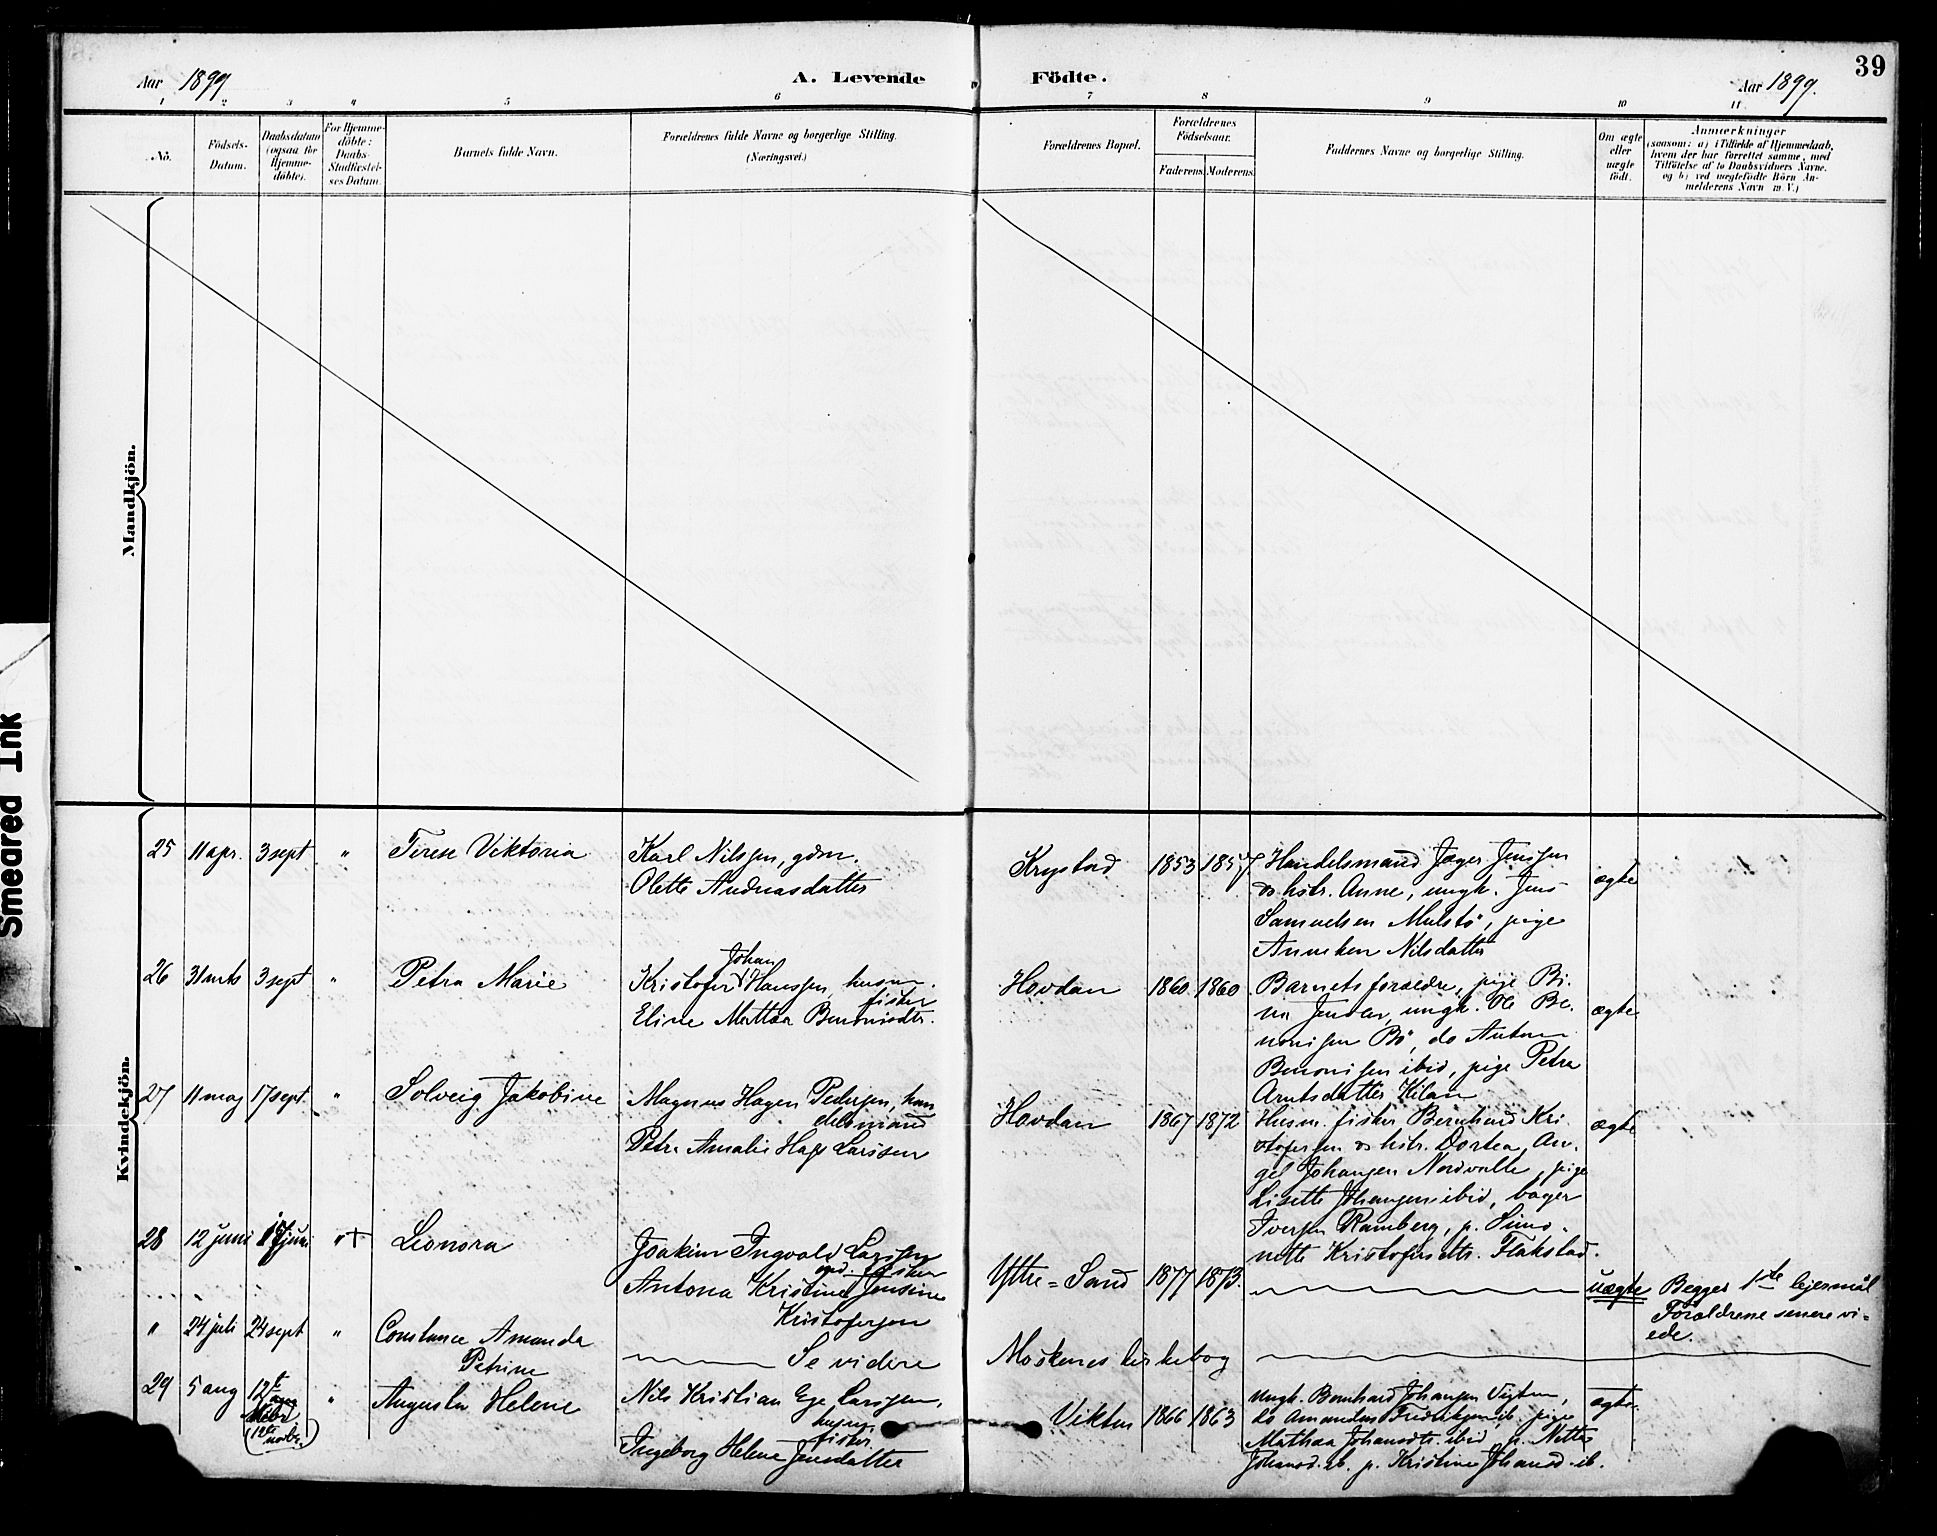 39
Aar 1899
A. Levende Födte.
Aar 1899.
1 2 3 4 5 6 7 8 9 10 11
No.
Födsels-
Datum.
Daabsdatum
(ogsaa for
Hjemme-
döbte).
For Hjemme-
döbte:
Daabs-
Stadfæstel-
ses Datum.
Barnets fulde Navn.
Forældrenes fulde Navne og borgerlige Stilling.
(Næringsvei.)
Forældrenes Bopæl.
Forældrenes
Födselsaar.
Faderens.
Moderens.
Faddernes Navne og borgerlige Stilling.
Om ægte
eller
uægte
födt.
Anmærkninger
(saasom: a) i Tilfælde af Hjemmedaab,
hvem der har forrettet samme, med
Tilföielse af to Daabsvidners Navne,
og b) ved uægtefödte Börn An-
melderens Navn m. V.)
Mandkjön.
Kvindekjön.
Smeared Ink
25 11 apr. 3 sept "
Terese Viktoria
Karl Nilssen, gdm.
Olette Andreasdatter
Krystad 1853 1857
Handelsmand Jæger Jenssen
& hstr. Anne, ungk. Jens
Samuelsen Mulstö, pige
Anneken Nilsdatter
ægte
26 31 mts 3 sept "
Petra Marie
Johan
Kristofer Hanssen, husm.
fisker
Eline Martha Benonisdtr.
Hovdan 1860 1860
Barnets forældre, pige Bi-
na Jensen, ungk. Ole Be-
nonisen Bö, do Anton
Benonisen ibid, pige Petra
Arntsdatter Kilan
ægte
27 11 maj 17 sept. "
Solveig Jakobine
Magnus Hagen Pedersen, han
delsmand
Petra Amalie Larssen
Hovdan 1867 1872
Husm. fisker Bernhard Kri-
stofersen & hstr. Dortea, An-
gel Johansen Nordvolle, pige
Lisette Johansen ibid, bager
Iversen Ramberg, p. Simo-
nette Kristofersdtr. Flakstad.
ægte
28 12 juni juni " +
Leonora
Joakim Ingvald Larssen
fisker
Antona Kristine Jensine
Kristofersen
Yttre-Sand 1877 1873.
uægte
Begges 1ste lejermål
Forældrene senere vi-
ede.
" 24 juli 24 sept "
Constance Amanda
Petrine
Se videre Moskenes kirkebog
29 5 aug 12te
(12te novbr.)
"
Augusta Helene
Nils Kristian Larssen,
fisker
Ingeborg Helene Jensdatter
Vikten 1866 1863
ungk. Bernhard Johansen Vigten,
do Amandus Fredriksen ib. pige
Mathea Johansdtr. ibid, p. Netta
Johansd. ib. p. Kristine Johansd. ib.
ægte